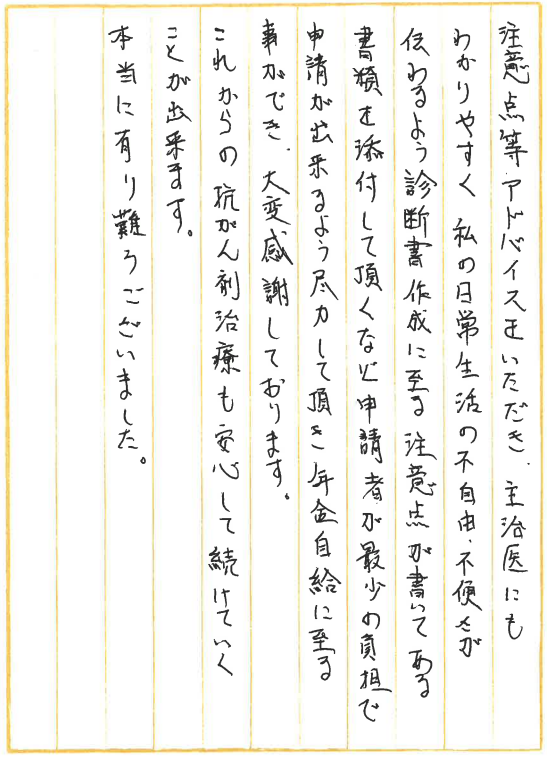 注意点等アドバイスをいただき、主治医にも
わかりやすく 私の日常生活の不自由、不便さが
伝わるよう診断書作成に至る注意点が書いてある
書類を添付して頂くなど申請者が最少の負担で
申請が出来るよう尽力して頂き年金自給に至る
事ができ、大変感謝しております。
これからの抗がん剤治療も安心して続けていく
ことが出来ます。
本当に有り難うございました。